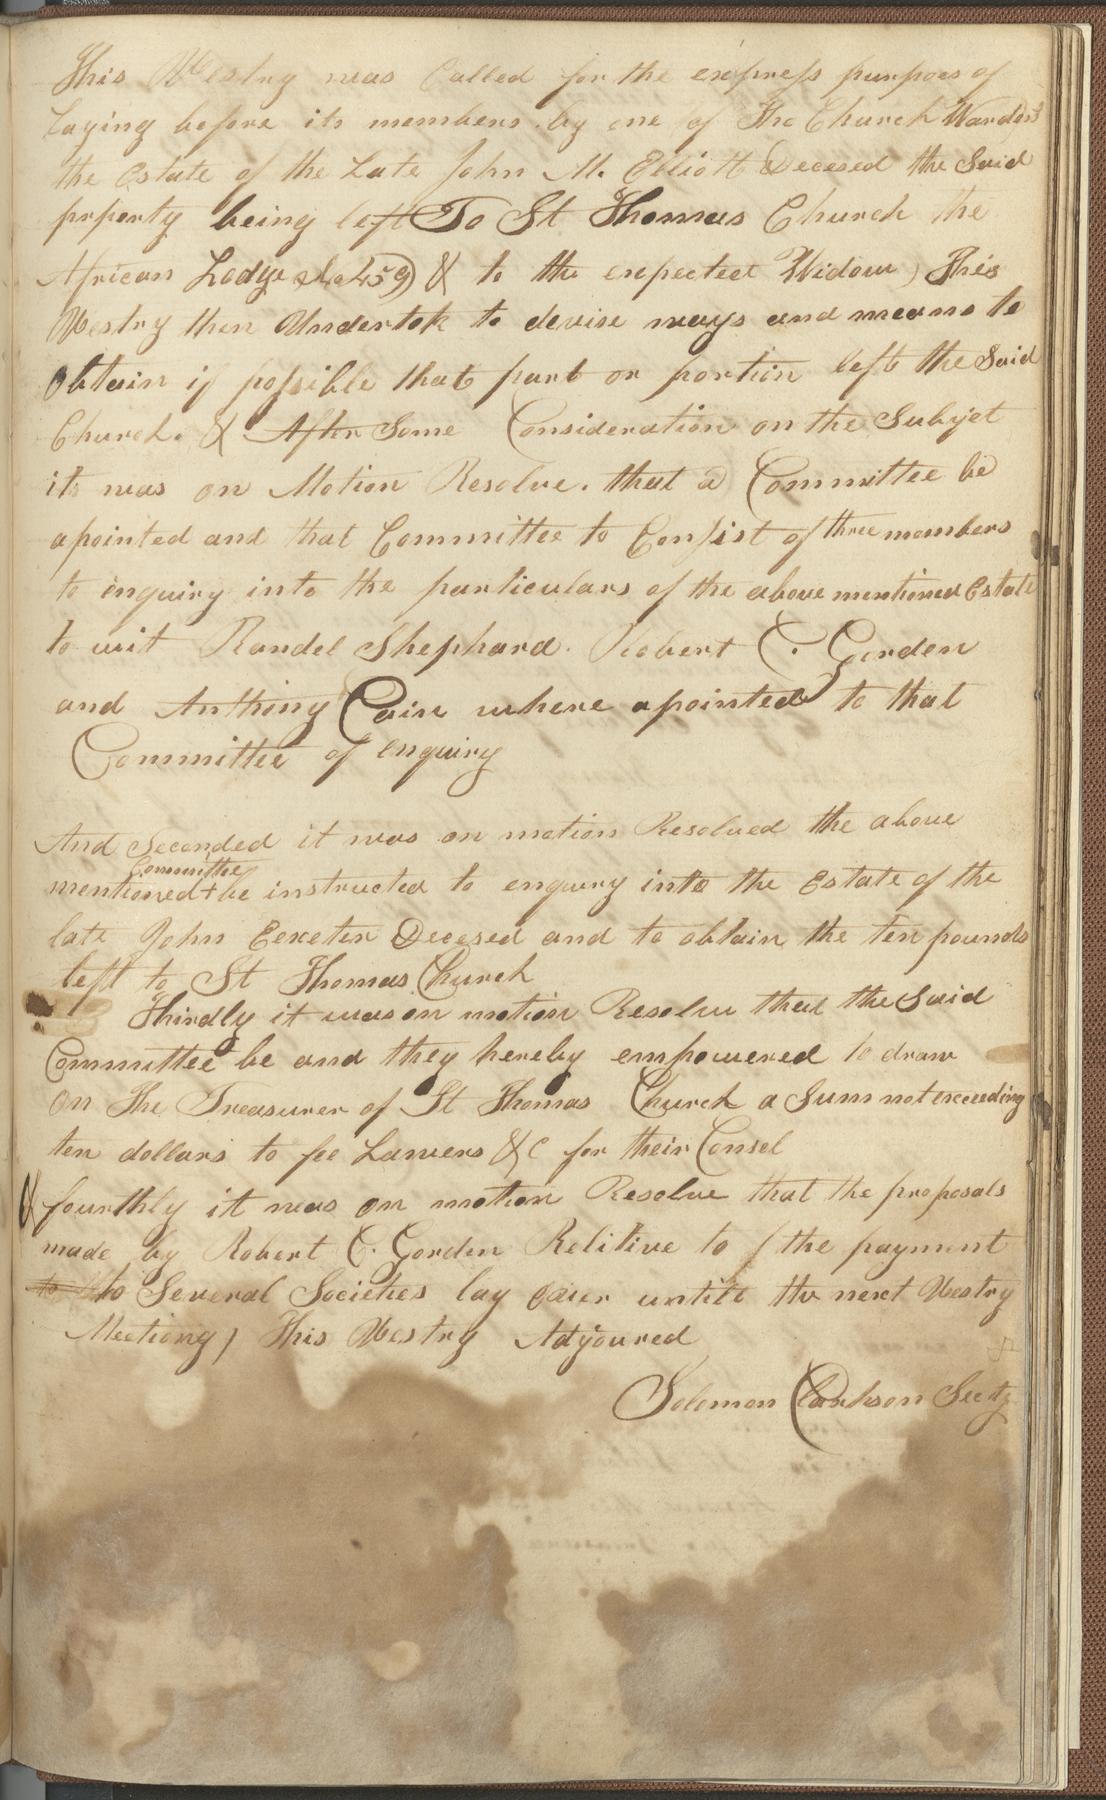 This Vestry was Called for the express purpoes of
Laying before its members by one of The Church Wardens
the Estate of the Late John M. Elliott Decesed the Said
prperty being left To St Thomas Church the
African Lodge No 459) & to the expected Widow) This
Vestry then Undertok to devise ways and means to
Obtain if possible that part or portion left the Said
Church. & After Some Consideration on the Subjet
its was on Motion Resolve. that a Committee be
apointed and that Committee to Consist of three members
to enquiry into the particulars of the above mentioned Estate
to wit Randel Shephard. Robert C. Gorden
and Anthiny Cain where apointed to that
Committee of enquiry
And Seconded it was on motion Resolved the above
Committee
mentioned + be instructed to enquiry into the Estate of the
late John Eexeter Decesed and to obtain the ten pounds
left to St Thomas Church
Thirdly it was on motion Resolve that the Said
Committee be and they hereby empowered to draw
on The Treasurer of St Thomas Church a Sum not exceeding
ten dollars to fee Lawers &C for their Consel
& fourthly it was on motion Resolve that the proposals
made by Robert C. Gorden Relitive to the payment
to to Several Societies lay over untill the next Vestry
Meeting) This Vestry Adyoured
Solomon Clarkson Secty